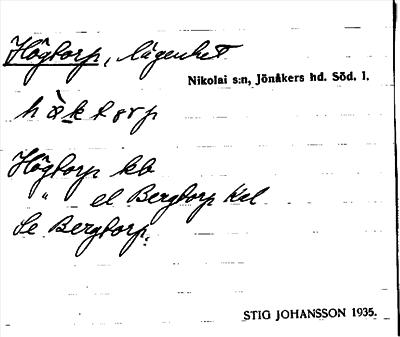 Högtorp, lägenhet
Nikolai s:n, Jönåkers hd. Söd. l.
Högtorp kb
" el Bergtorp
Se Bergtorp.
STIG JOHANSSON 1935.